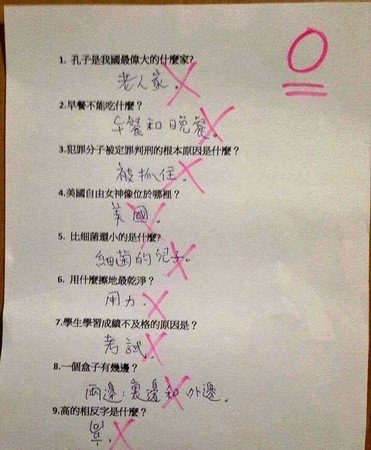 0
1. 孔子是我國最偉大的什麼家?
老人家。
2.早餐不能吃什麼？
午餐和晚餐
3.犯罪分子被定罪判刑的根本原因是什麼？
被抓住。
4.美國自由女神像位於哪裡？
美國。
5. 比細菌還小的是什麼?
細菌的兒子。
6. 用什麼擦地最乾淨？
用力。
7.學生學習成績不及格的原因是？
考試。
8.一個盒子有幾邊？
兩邊：裏邊和外邊。
9.高的相反字是什麼？